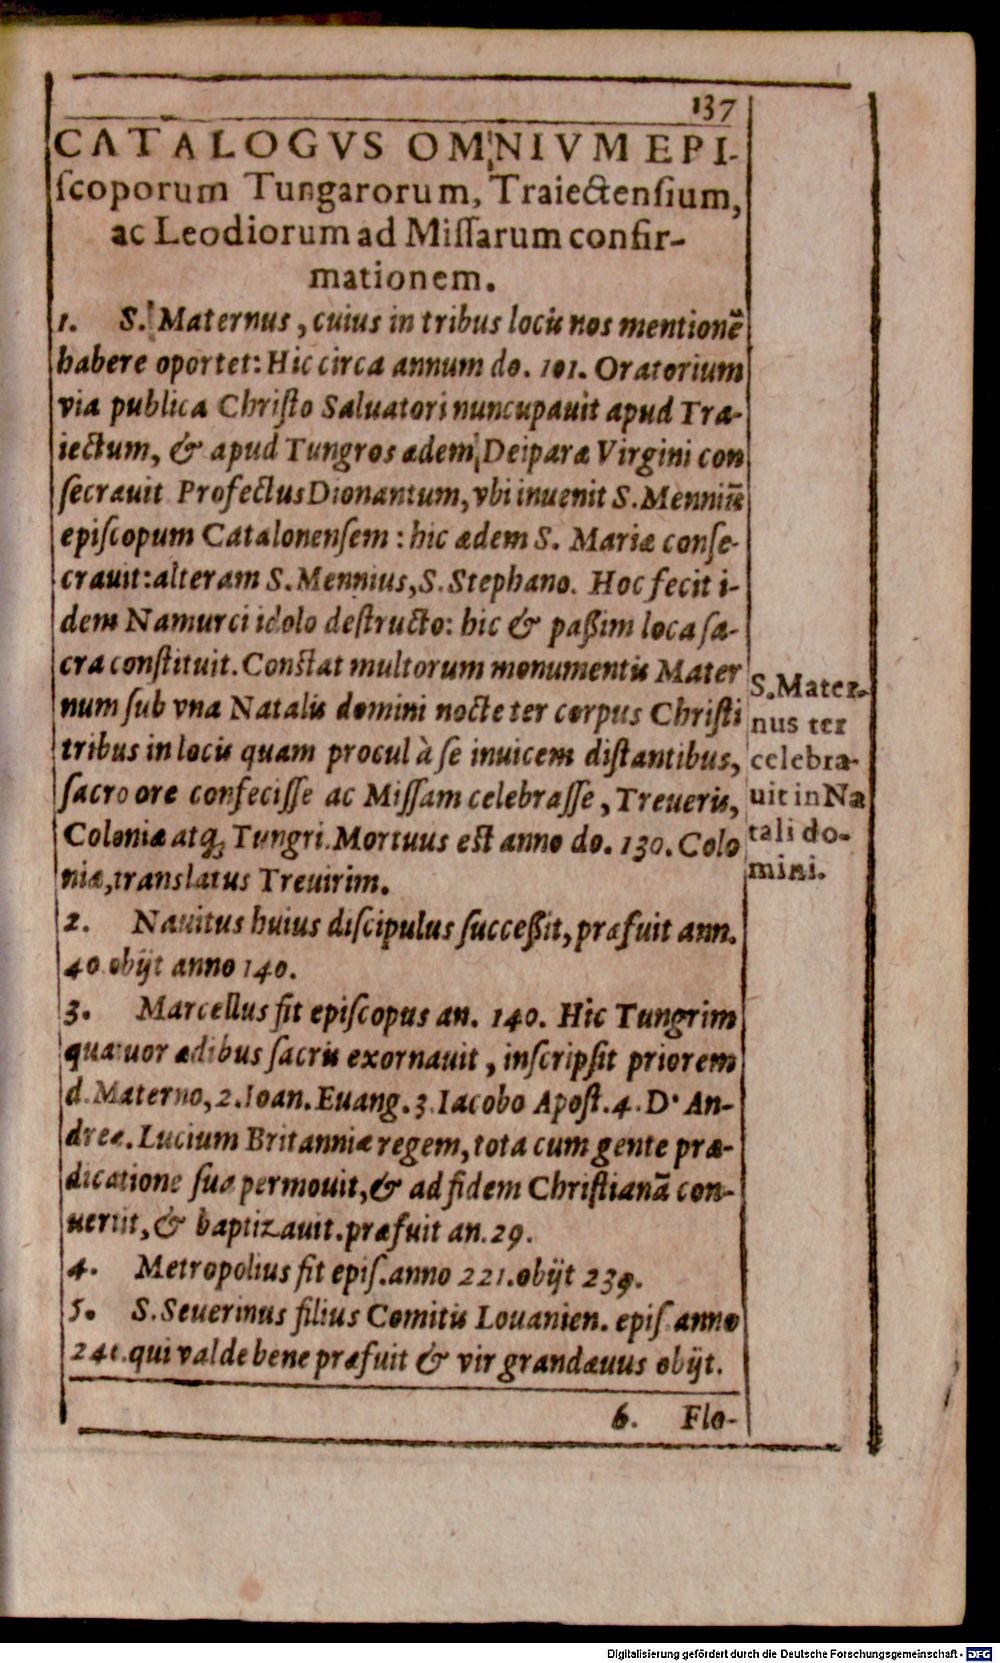 137
CATALOGVS OMNIVM EPI-
ſcoporum Tungarorum, Traiectenſium,
ac Leodiorum ad Miſſarum confir-
mationem.
1. S. Maternus, cuius in tribus locis nos mentionẽ
habere oportet: Hic circa annum do. 101. Oratorium
via publica Chriſto Saluatori nuncupauit apud Tra-
iectum, & apud Tungros ædem Deiparæ Virgini con
ſecrauit Profectus Dionantum, vbi inuenit S. Menniũ
epiſcopum Catalonenſem: hic ædem S. Mariæ conſe-
crauit: alteram S. Mennius, S. Stephano. Hoc fecit i-
dem Namurci idolo deſtructo: hic & paßim loca ſa-
cra conſtituit. Conſtat multorum monumentis Mater
num ſub vna Natalis domini nocte ter corpus Chriſti
tribus in locis quam procul à ſe inuicem diſtantibus,
ſacro ore confeciſſe ac Miſſam celebraſſe, Treueris,
Coloniæ atq; Tungri. Mortuus eſt anno do. 130. Colo
niæ, translatus Trevirim.
S. Mater-
nus ter
celebra-
uit in Na
tali do-
mini.
2. Nauitus huius diſcipulus ſucceßit, præfuit ann.
40 obijt anno 140.
3. Marcellus fit epiſcopus an. 140. Hic Tungrim
quatuor ædibus ſacris exornauit, inſcripſit priorem
d. Materno, 2. Ioan. Euang. 3. Iacobo Apoſt. 4. D. An-
dreæ. Lucium Britanniæ regem, tota cum gente præ-
dicatione ſua permouit, & ad fidem Chriſtianã con-
uertit, & baptizauit. præfuit an. 29.
4. Metropolius fit epiſ. anno 221. obijt 239.
5. S. Seuerinus filius Comitis Louanien. epiſ. anno
241. qui valde bene præfuit & vir grandæuus obijt.
6. Flo-
Digitalisierung gefördert durch die Deutsche Forschungsgemeinschaft - DFG